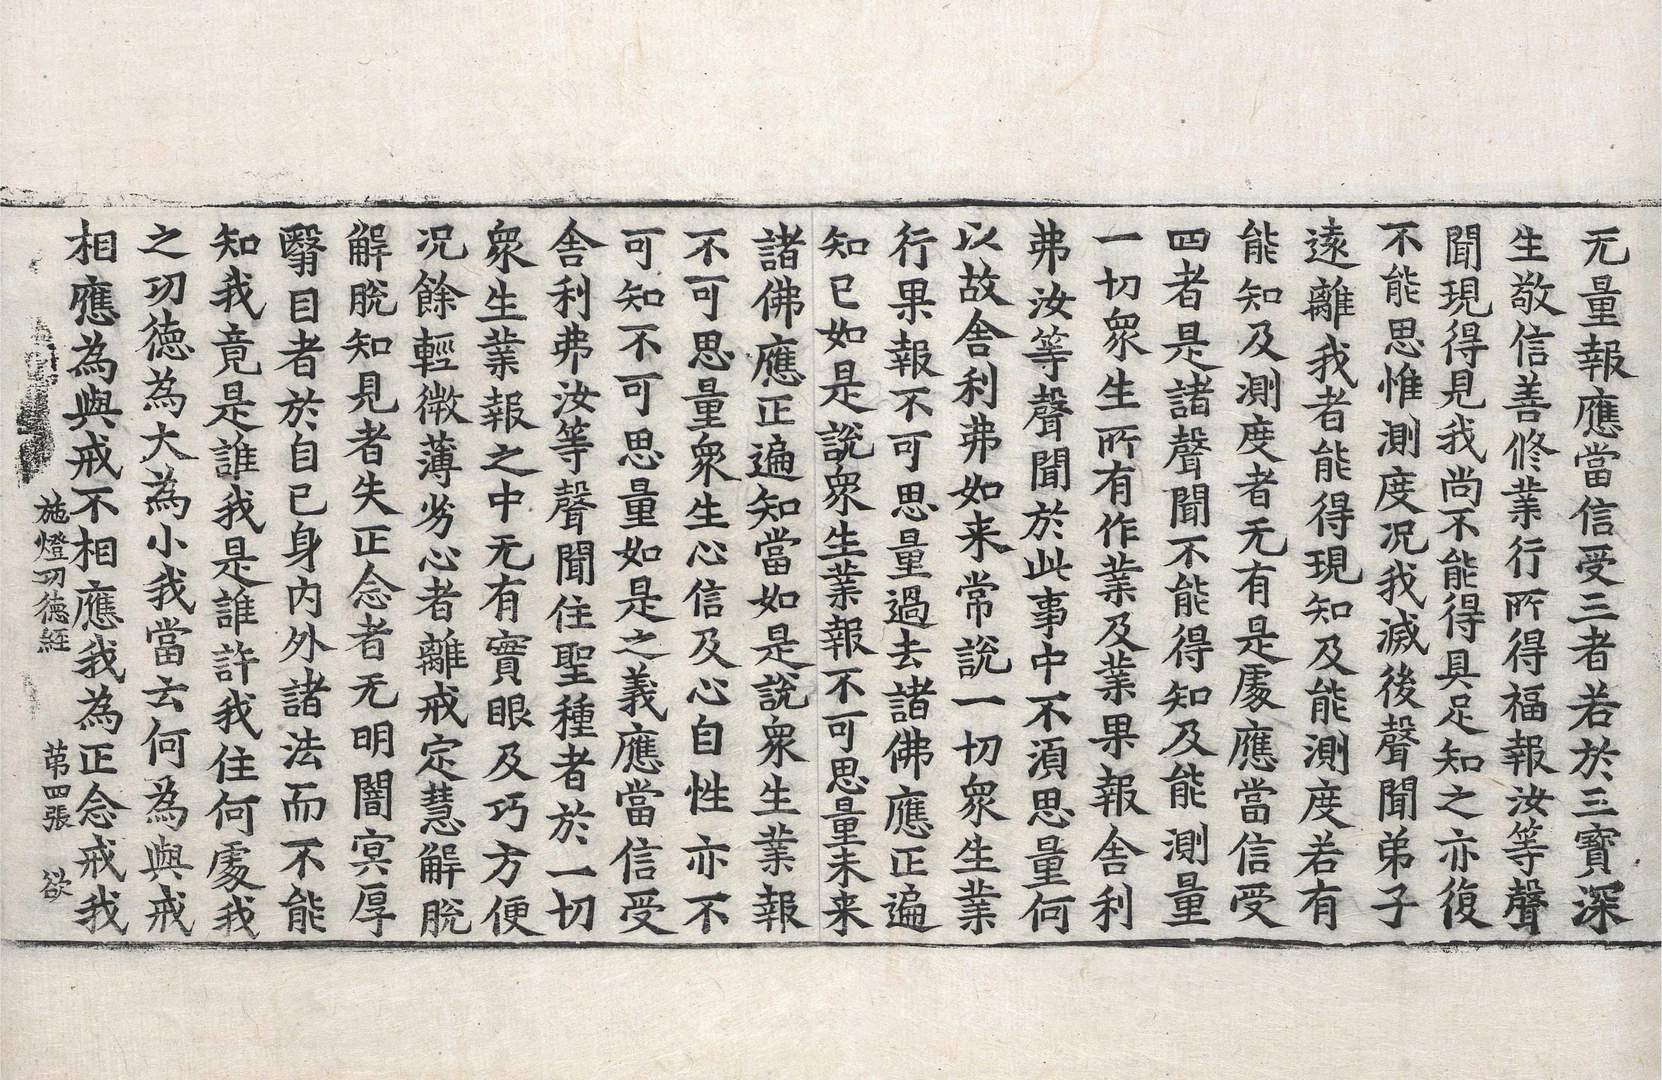 无量報應當信受三者若於三寶深
生敬信善修業行所得福報汝等聲
聞現得見我尚不能得具足知之亦復
不能思惟測度况我滅後聲聞弟子
遠離我者能得現知及能測度若有
能知及測度者无有是處應當信受
四者是諸聲聞不能得知及能測量
一切衆生所有作業及業果報舍利
弗汝等聲聞於此事中不湏思量何
以故舍利弗如来常說一切衆生業
行果報不可思量過去諸佛應正遍
知已如是說衆生業報不可思量未来
諸佛應正遍知當如是說衆生業報
不可思量衆生心信及心自性亦不
可知不可思量如是之義應當信受
舍利弗汝等聲聞住聖種者於一切
衆生業報之中无有實眼及巧方便
况餘輕微薄劣心者離戒定慧解脫
解脫知見者失正念者无明闇冥厚
翳目者於自己身內外諸法而不能
知我竟是誰我是誰許我住何處我
之功德為大為小我當云何為與戒
相應為與戒不相應我為正念戒我
施燈功德経　苐四張　欲